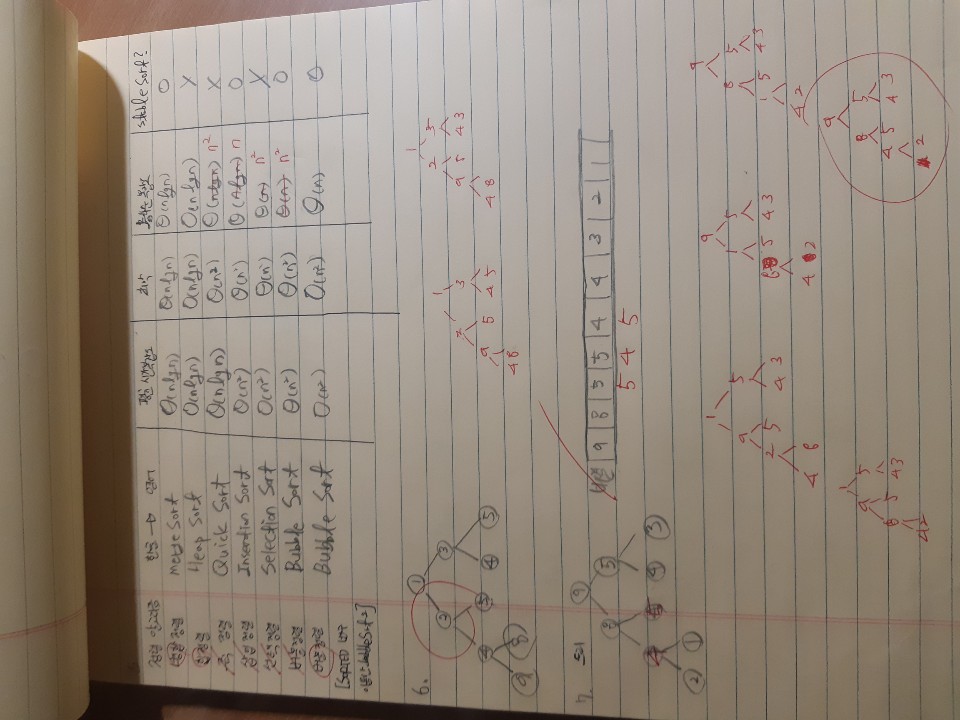 정렬 알고리즘 한글 → 영어 평균 시간복잡도 최악 stable Sort?
병합 정렬 Merge Sort Θ(nlgn) Θ(nlgn) Θ(nlgn) O
힙정렬 Heap Sort O(nlgn) Θ(nlgn) O(nlgn) X
퀵 정렬 Quick Sort Θ(nlgn) Θ(n²) Θ(nlgn) n² X
삽입정렬 Insertion Sort Θ(n²) Θ(n²) Θ(nlgn) n O
선택정렬 Selection Sort O(n²) Θ(n²) Θ(n) n² X
버블정렬 Bubble Sort Θ(n²) Θ(n²) Θ(n) n² O
버블정렬 Bubble Sort O(n²) O(n²) Θ(n) O
[Sorted
bubble Sort2]
6.
1
2 3
4 5 4 5
9 8
1
2 3
9 5 4 5
4 8
1
2 5
9 5 4 3
4 8
7. 트리
9
8 5
4 5 4 3
2 1
배열 9 8 5 5 4 4 3 2 1
5 4 5
1
9 5
2 5 4 3
4 8
9
1 5
8 5 4 3
4 2
9
8 5
1 5 4 3
4 2
1
9 5
8 5 4 3
4 2
9
8 5
4 5 4 3
2